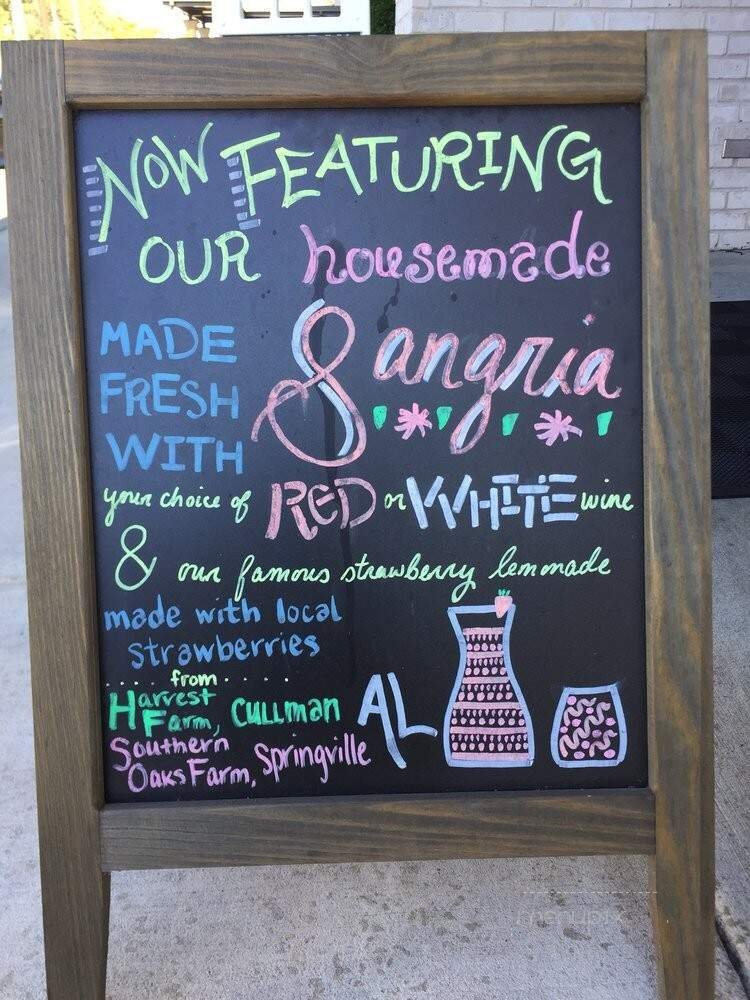 NOW FEATURING
OUR housemade
Sangria
MADE
FRESH
WITH
your choice of RED or WHITE wine
& our famous strawberry lemonade
made with local
strawberries
from
Harvest
Farm, Cullman
Southern
Oaks Farm, Springville
AL
menupix